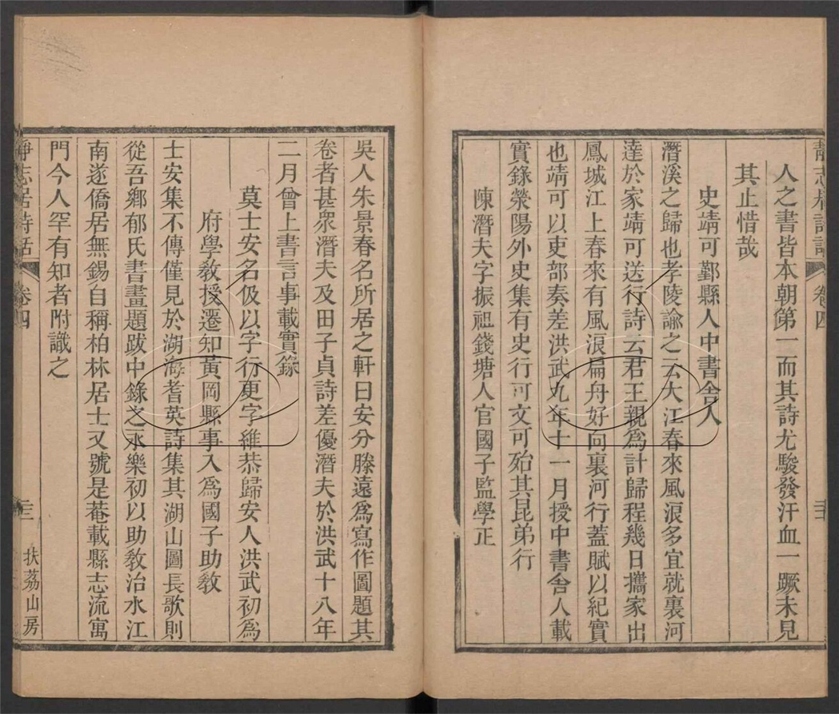 靜志居詩話
卷四
三
人之書皆本朝第一而其詩尤駿發汗血一蹶未見
其止惜哉
史靖可鄞縣人中書舍人
潛溪之歸也孝陵諭之云大江春來風浪多宜就裏河
達於家靖可送行詩云君王親爲計歸程幾日攜家出
鳳城江上春來有風浪扁舟好向裏河行蓋賦以紀實
也靖可以吏部奏差洪武九年十一月授中書舍人載
實錄滎陽外史集有史行可文可殆其昆弟行
陳潛夫字振祖錢塘人官國子監學正
吳人朱景春名所居之軒曰安分滕遠爲寫作圖題其
卷者甚衆潛夫及田子貞詩差優潛夫於洪武十八年
二月曾上書言事載實錄
莫士安名伋以字行更字維恭歸安人洪武初爲
府學敎授遷知黃岡縣事入爲國子助敎
士安集不傳僅見於湖海耆英詩集其湖山圖長歌則
從吾鄉郁氏書畫題跋中錄之永樂初以助敎治水江
南遂僑居無錫自稱柏林居士又號是菴載縣志流寓
門今人罕有知者附識之
靜志居詩話
卷四
扶荔山房